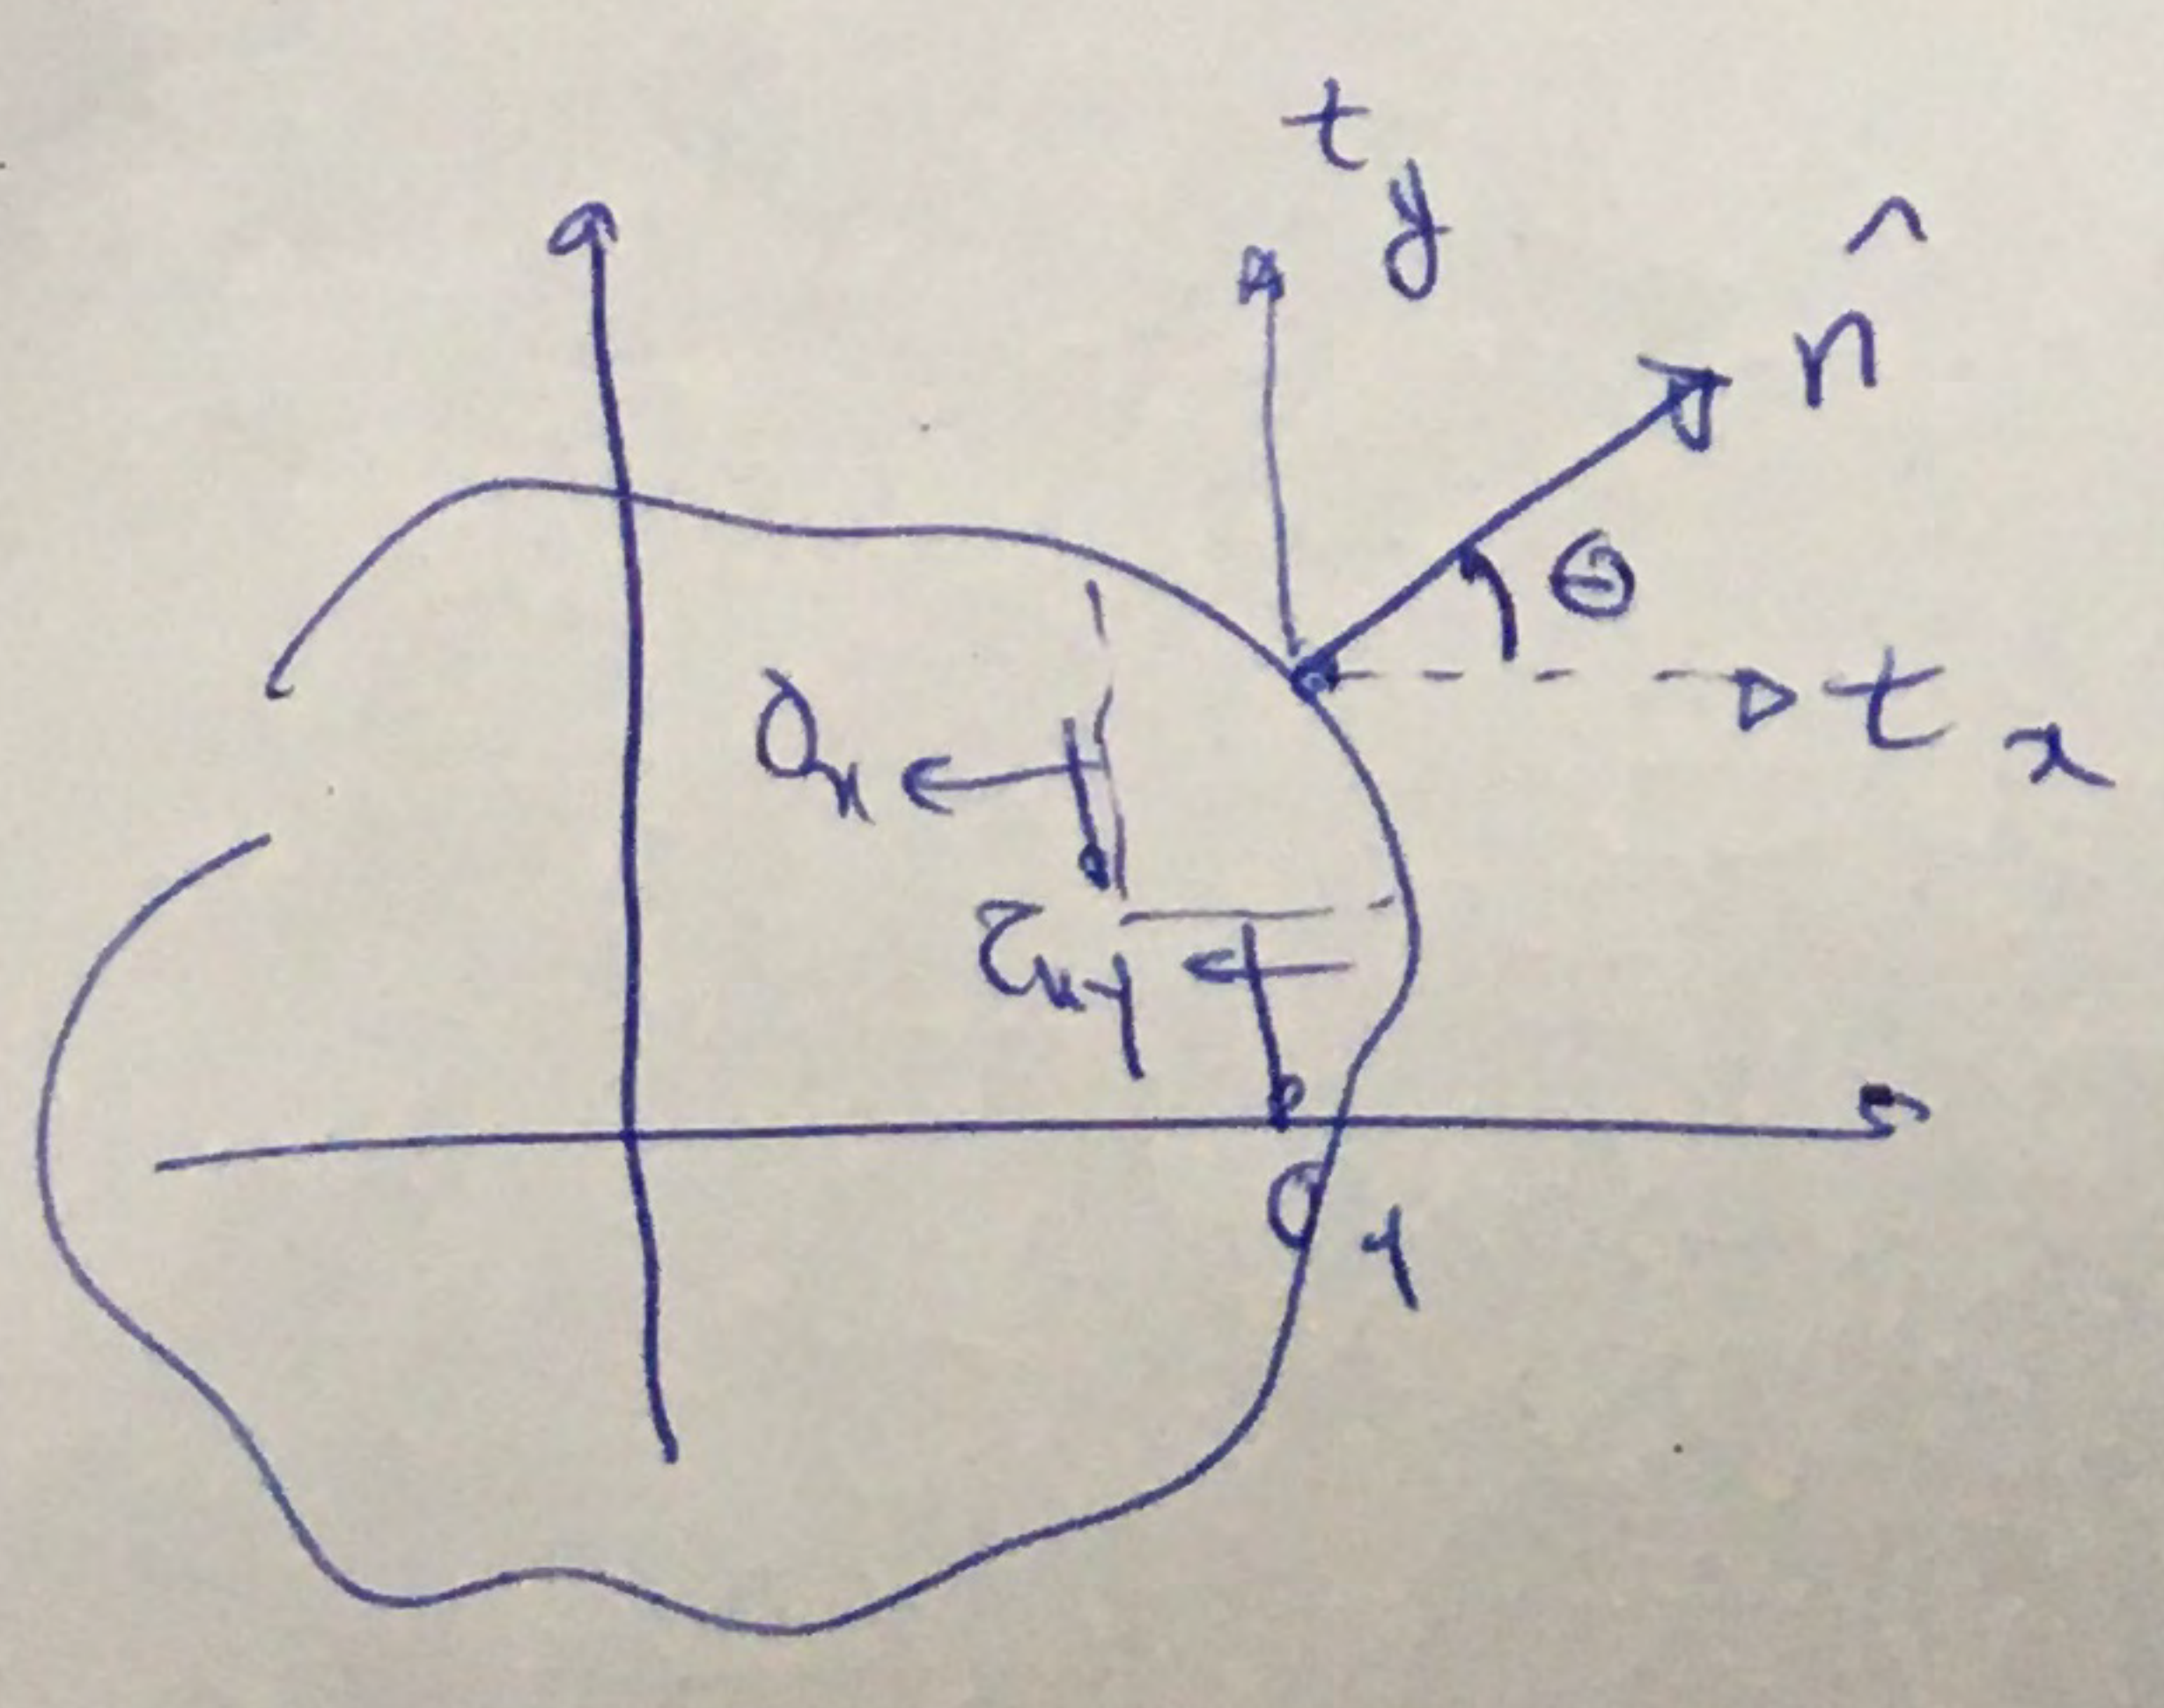 t y
n̂
θ
t x
σx
τxy
σ y